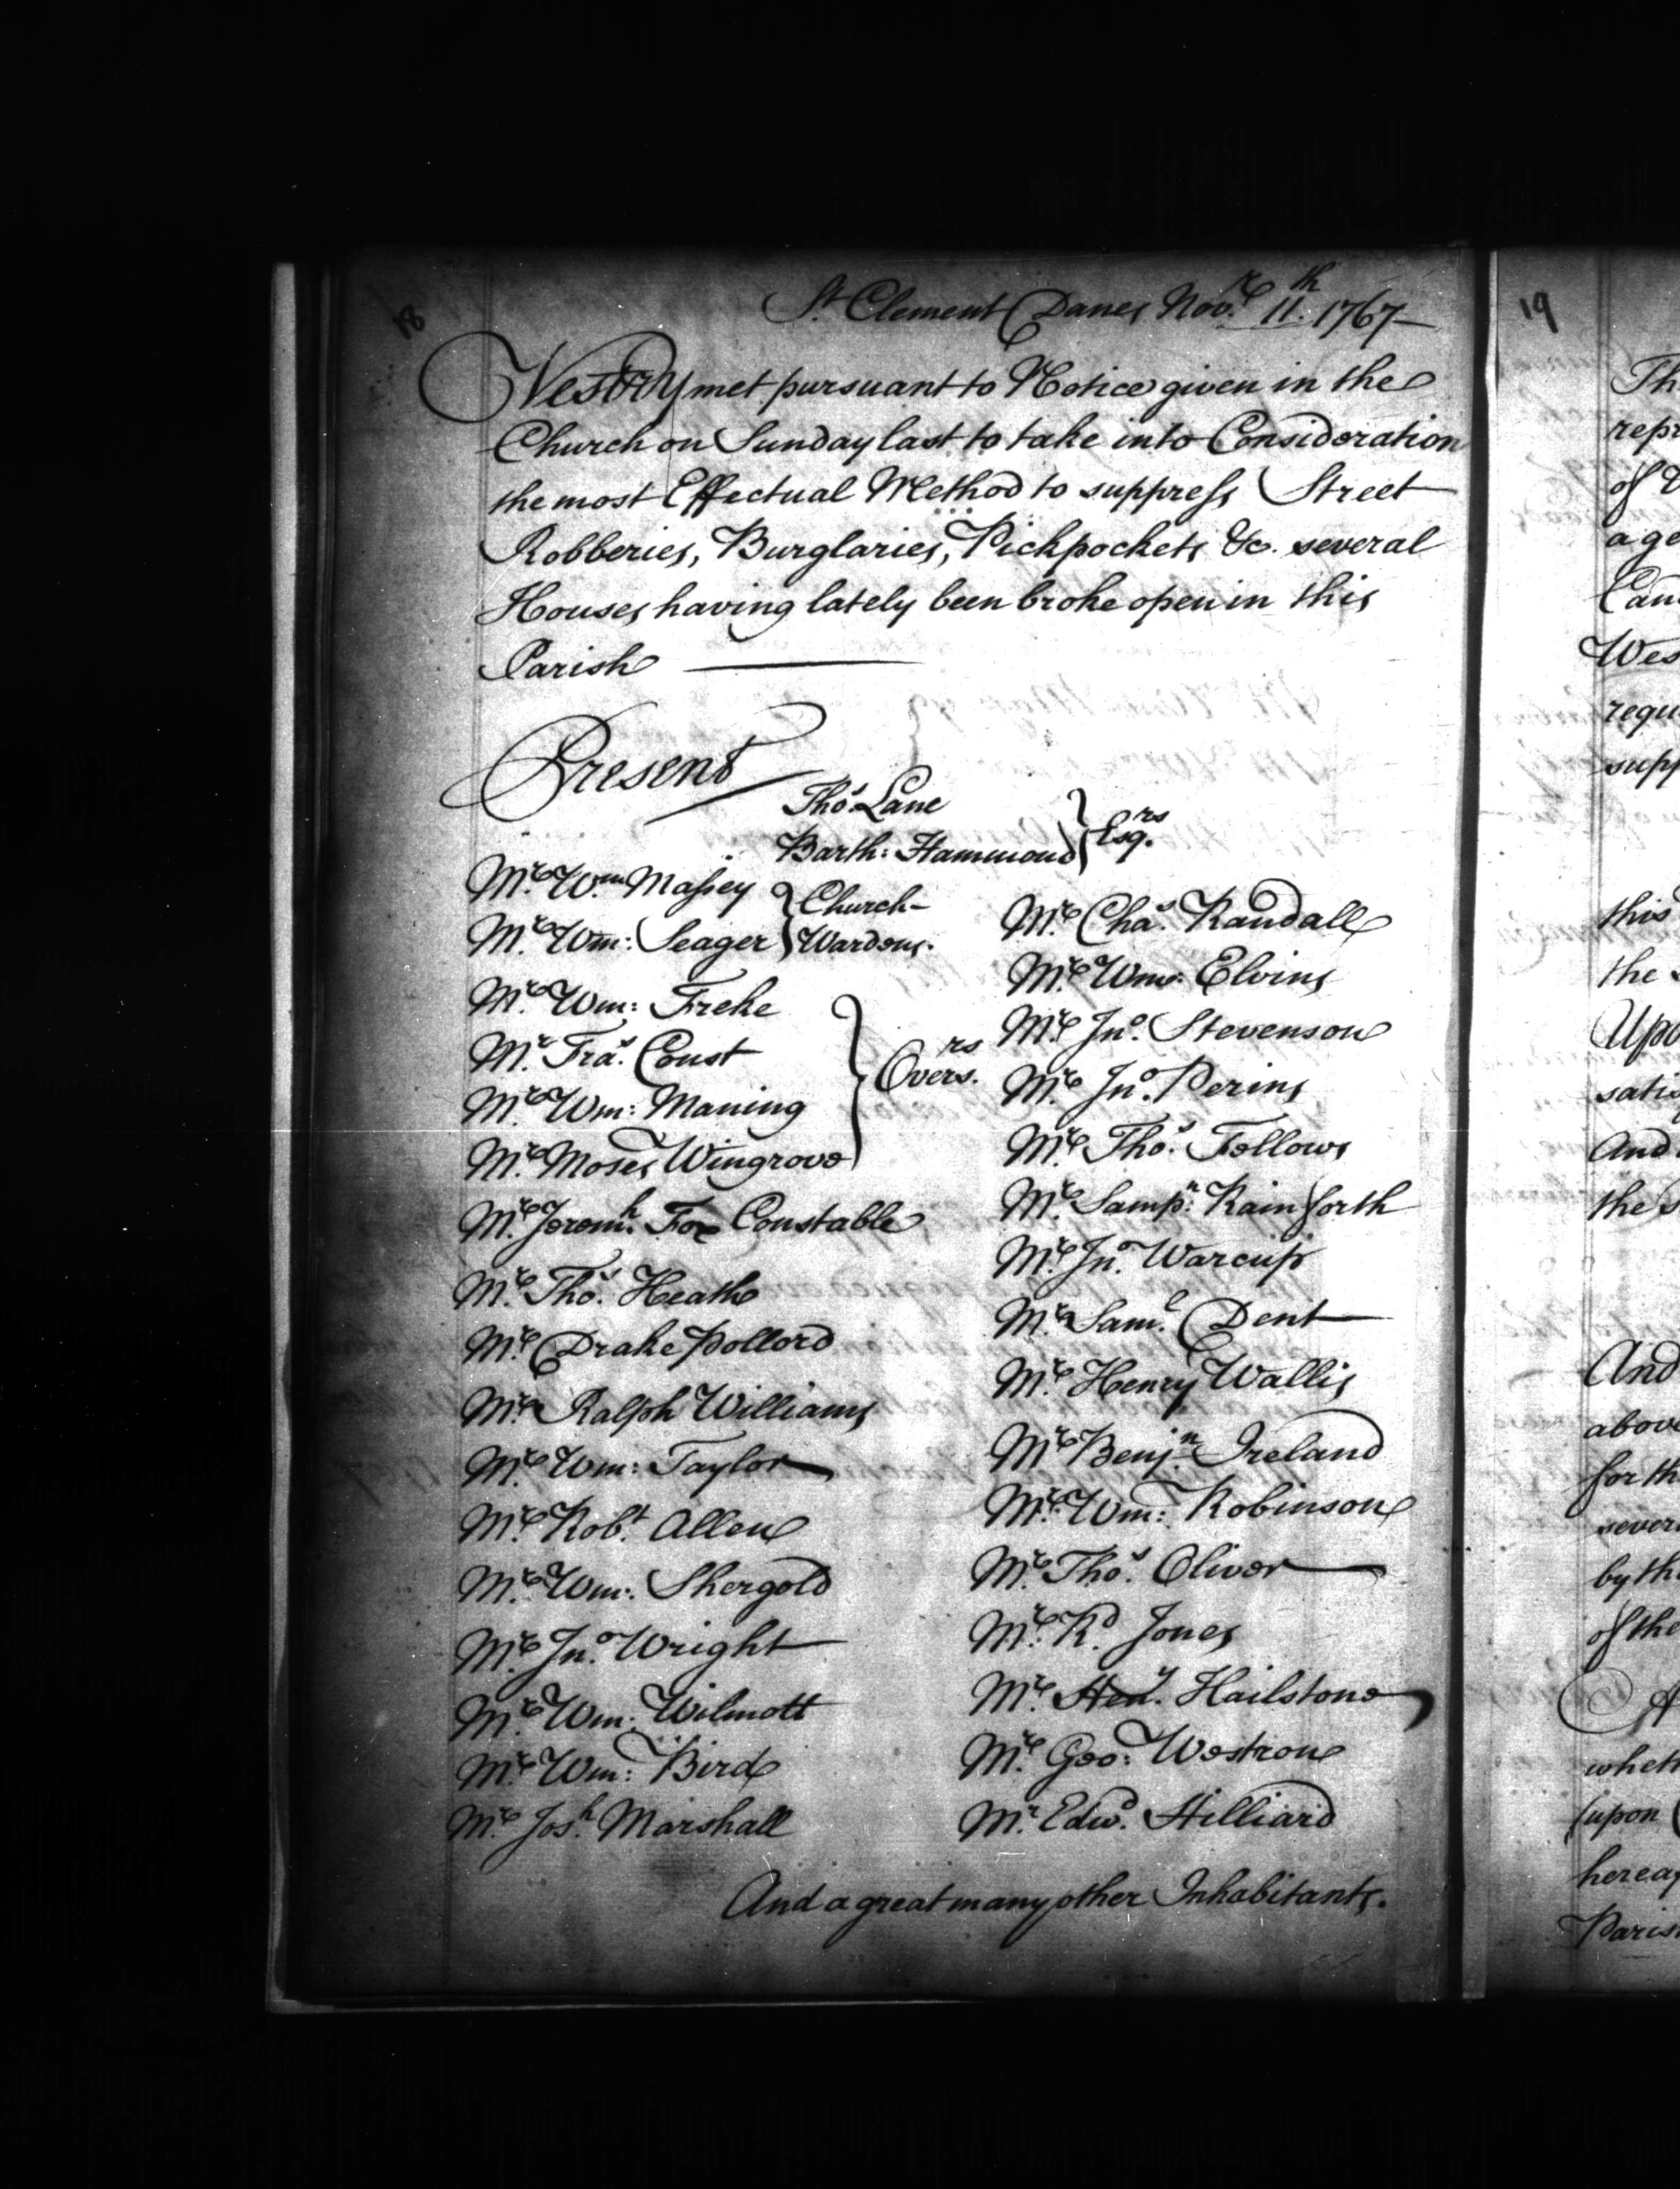 18
St. Clement Danes Novr. 11th. 1767
Vestry met pursuant to Notice given in the
Church on Sunday last to take into Consideration
the most Effectual Method to suppress Street
Robberies, Burglaries, Pickpockets &c. several
Houses having lately been broke open in this
Parish
Present
Thos. Lane
Barth: Hammond } Esqrs.
Mr. Wm. Massey
Mr. Wm: Seager } Church-
Wardens.
Mr. Wm: Freke
Mr. Fras. Const
Mr. Wm: Maning
Mr. Moses Wingrove
} Overs.rs
Mr. Jeremh. Fox Constable
Mr. Thos. Heath
Mr. Drake Pollord
Mr. Ralph Williams
Mr. Wm: Taylor
Mr. Robt. Allen
Mr. Wm: Shergold
Mr. Jno. Wright
Mr. Wm: Wilmott
Mr. Wm: Bird
Mr. Josh. Marshall
Mr. Chas. Randall
Mr. Wm: Elvins
Mr. Jno. Stevenson
Mr. Jno. Perins
Mr. Thos. Fellows
Mr. Sampn: Rainforth
Mr. Jno. Warcup
Mr. Saml. Dent
Mr. Henry Wallis
Mr. Benjn. Ireland
Mr. Wm: Robinson
Mr. Thos. Oliver
Mr. Rd. Jones
Mr. Heny. Hailstone
Mr. Geo: Westron
Mr. Edwd. Hilliard
And a great many other Inhabitants.
19
Th
repr
of
age
Can
Wes
requ
supp
this
the
Upo
satis
And
the
And
above
for th
sever
by the
of the
wheth
(upon
hereaf
Paris